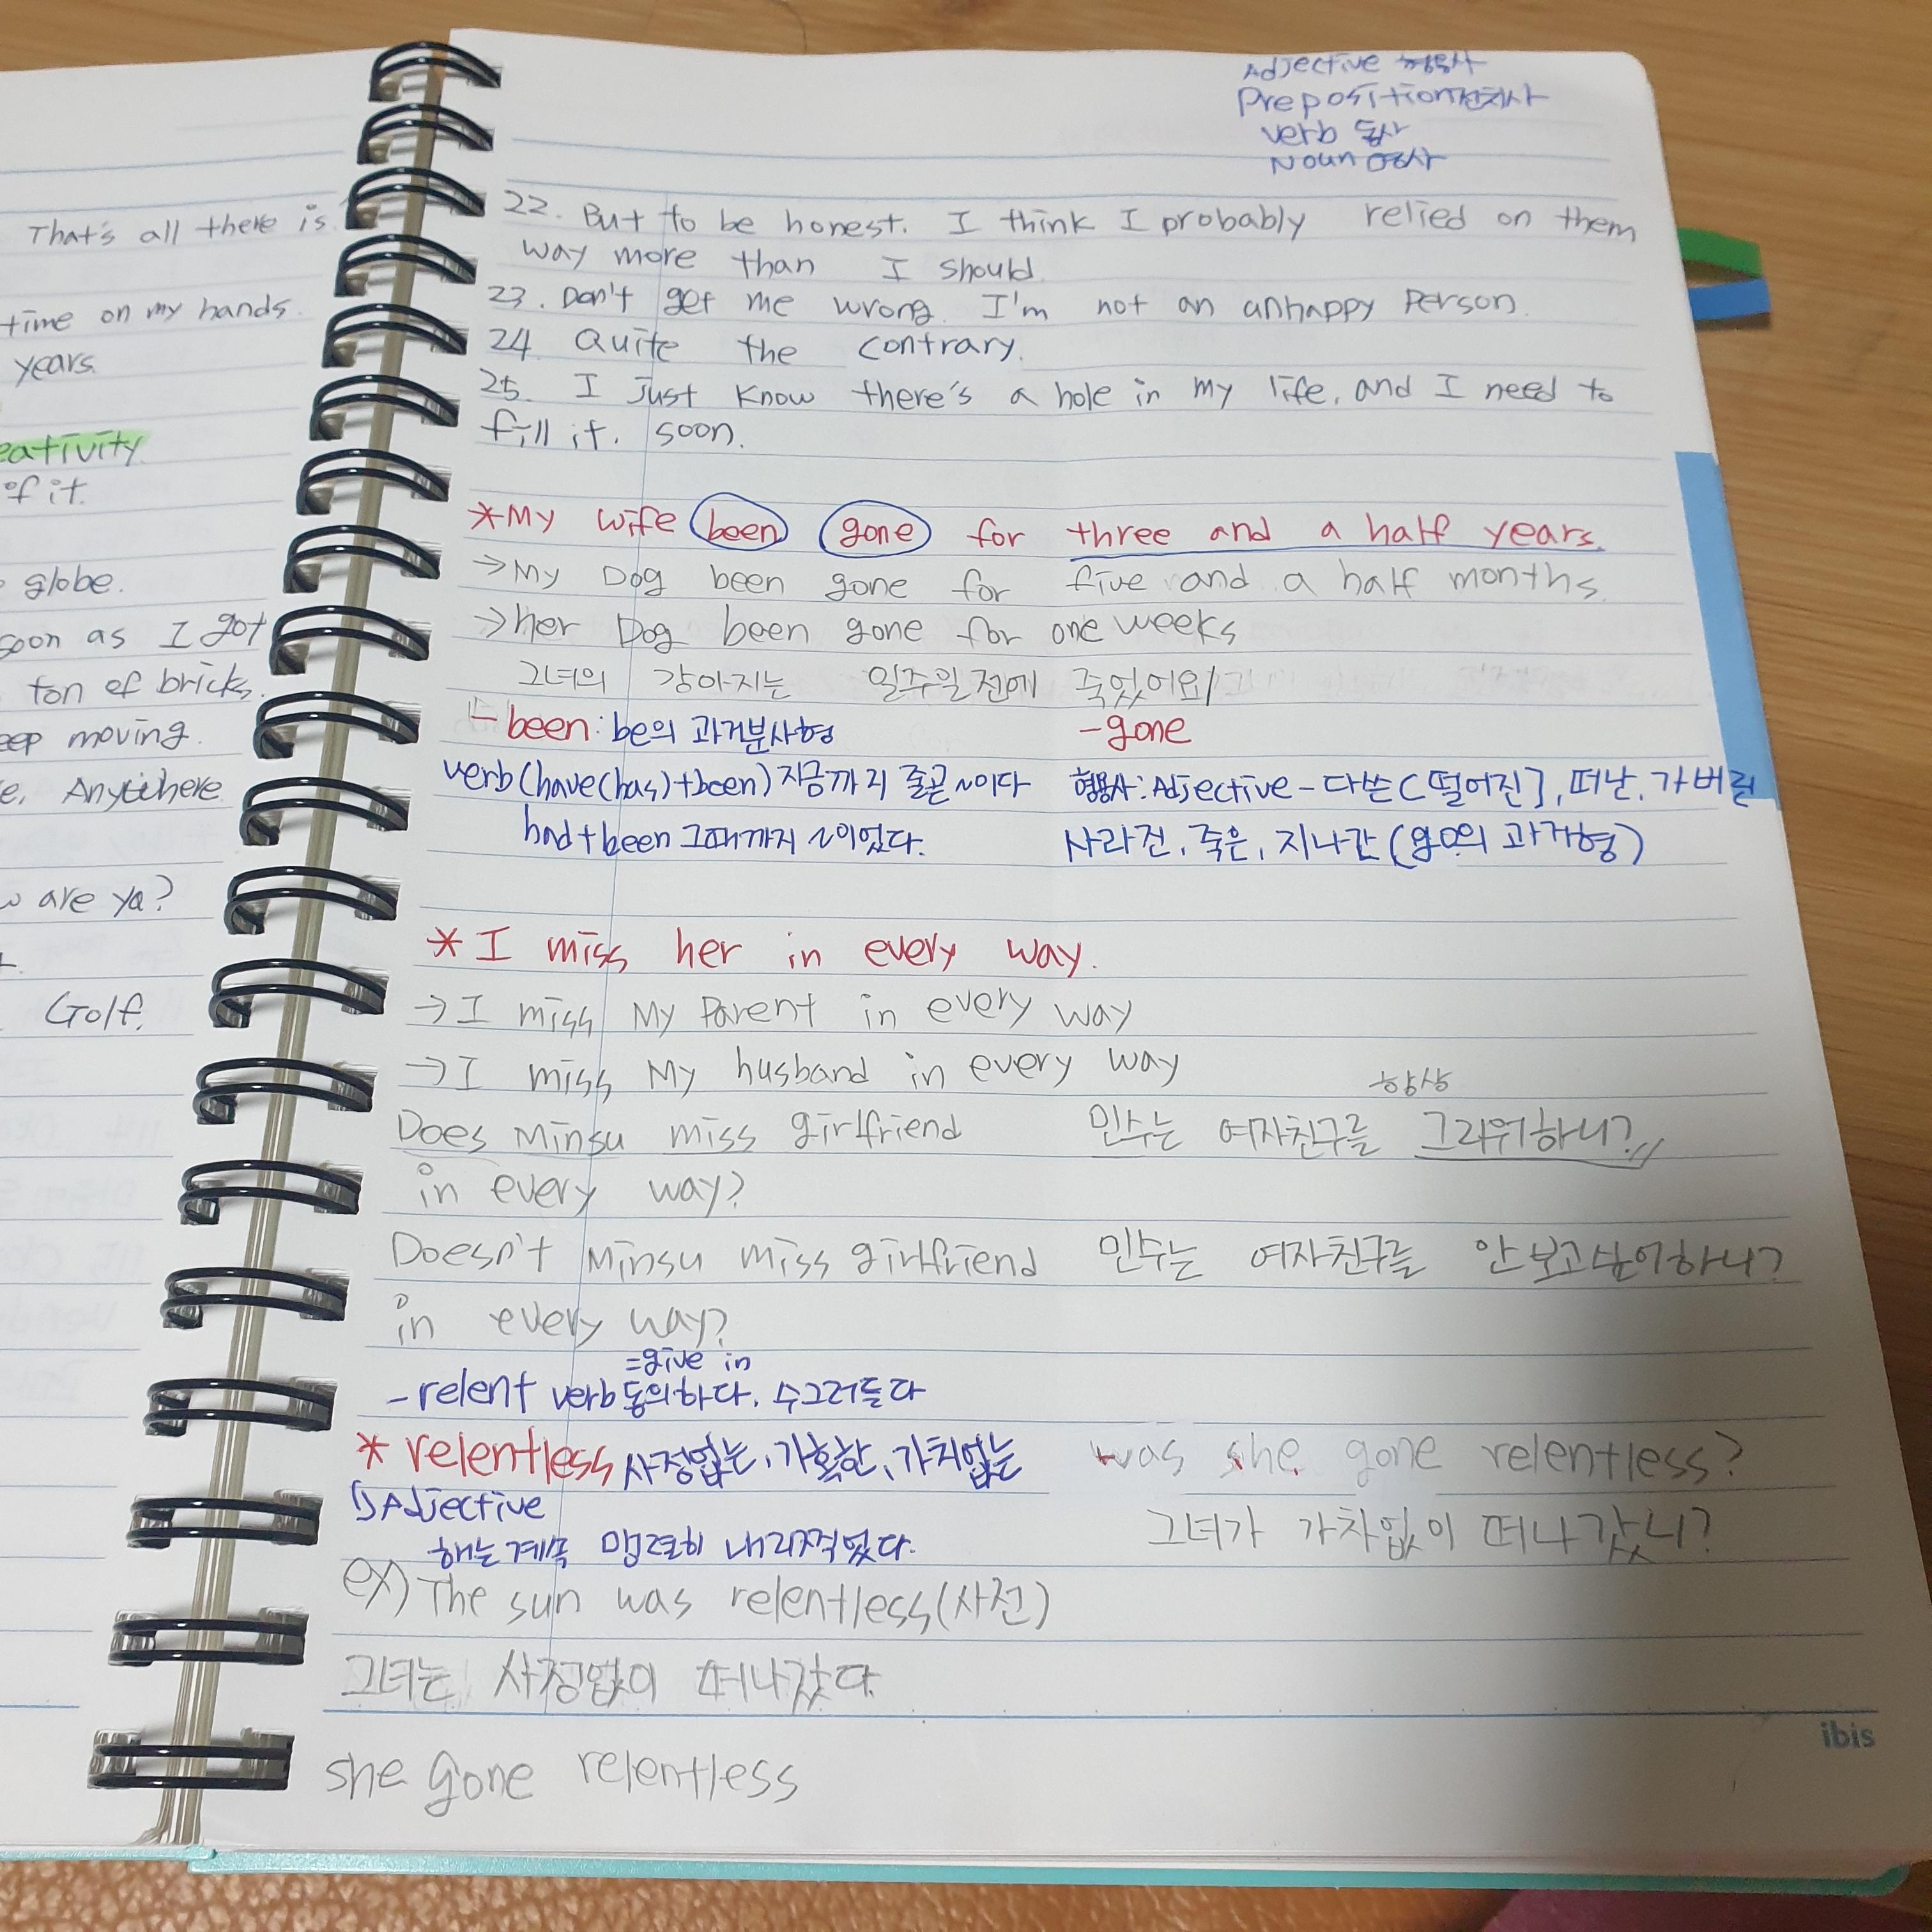 That's all there is.
time on my hands.
years.
eativity
of it.
globe.
soon as I got
ton of bricks.
eep moving.
e. Anywhere
w are ya?
Golf.
Adjective 형용사
Preposition 전치사
verb 동사
Noun 명사
22. But to be honest. I think I probably relied on them
way more than I should.
23. Don't get me wrong. I'm not an unhappy person.
24. Quite the contrary.
25. I just know there's a hole in my life, and I need to
fill it. soon.
*My wife been gone for three and a half years.
→My Dog been gone for five and a half months.
→her Dog been gone for one weeks
그녀의 강아지는 일주일전에 죽었어요
-been: be의 과거분사형
verb(have(has)+been) 지금까지 줄곧 ~이다
had+been 그때까지 ~이었다.
-gone
형용사: Adjective - 다쓴[떨어진], 떠난, 가버린
사라진, 죽은, 지나간 (go의 과거형)
*I miss her in every way.
→I miss My Parent in every way
→I miss My husband in every way
Does Minsu miss girlfriend
in every way?
항상
민수는 여자친구를 그리워하니?
Doesn't Minsu miss girlfriend
in every way?
민수는 여자친구를 안 보고싶어하니?
=give in
-relent verb 동의하다. 수그러들다
*relentless 사정없는, 가혹한, 가치없는
1) Adjective
해는 계속 맹렬히 내리쬐었다.
ex) The sun was relentless (사전)
그녀는 사정없이 떠나갔다.
she gone relentless
was she gone relentless?
그녀가 가차없이 떠나갔니?
ibis